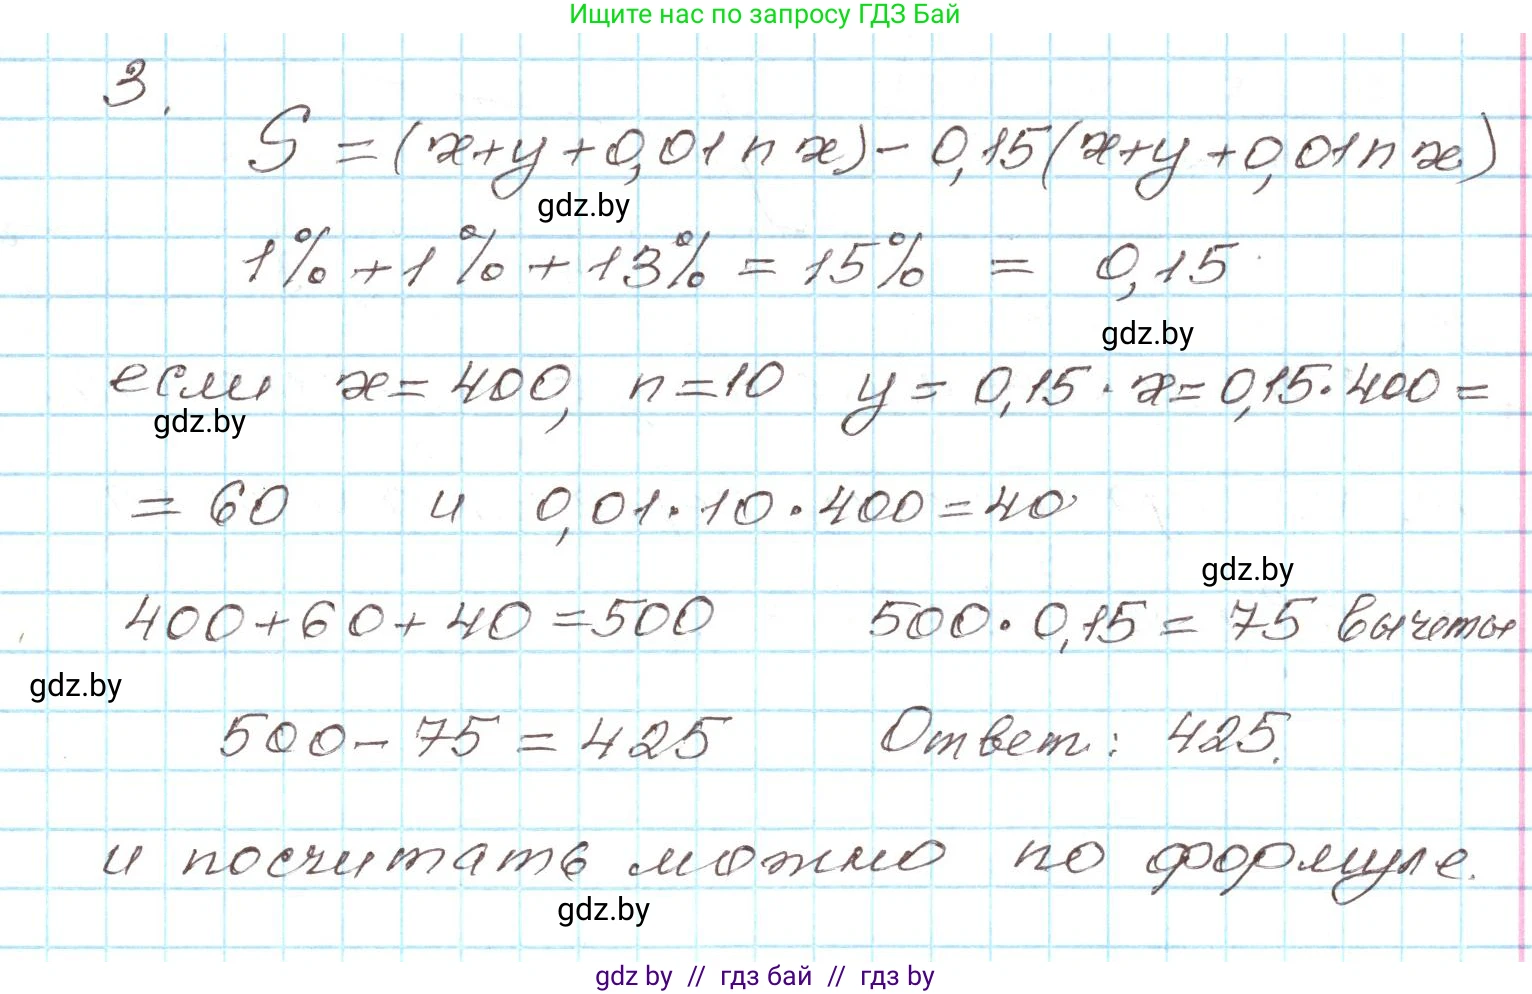 Ищите нас по запросу ГДЗ Бай
3.
S = (x+y+0,01nx) - 0,15(x+y+0,01nx)
gdz.by
1% + 1% + 13% = 15% = 0,15
gdz.by
если x = 400, n = 10 y = 0,15 · x = 0,15 · 400 =
gdz.by
= 60 и 0,01 · 10 · 400 = 40
gdz.by
400 + 60 + 40 = 500 500 · 0,15 = 75 вычеты
gdz.by
500 - 75 = 425 Ответ: 425.
и посчитать можно по формуле.
gdz.by
gdz by // гдз бай // гдз by